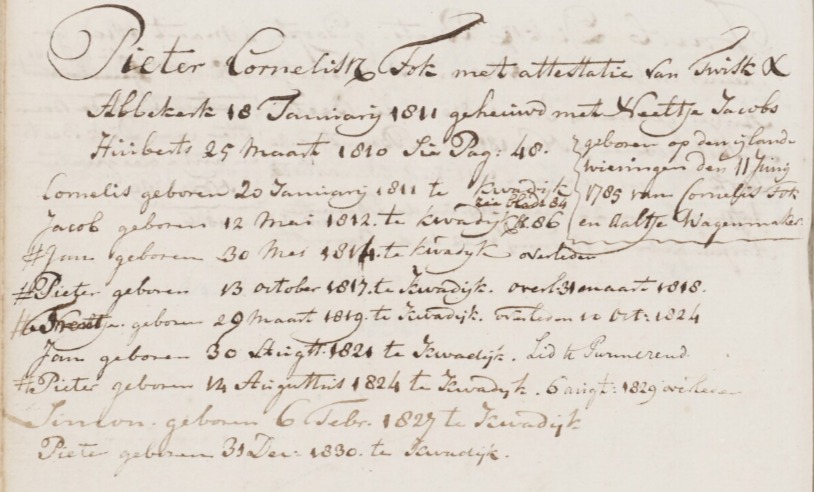 Pieter Cornelisz Tok met attestatie van Twisk &
Abbekerk 18 Januarij 1811 gehuuwd met Neeltje Jacobs
Huiberts 25 Maart 1810 Sie Pag: 48.
geboren op den ijlande
wieringen den 11 Junij
1785 van Cornelis Tok
en Aaltje Wagenmaker.
Cornelis geboren 20 Januarij 1811 te Kwadijk
zie bladz 84
Jacob geboren 12 Mei 1812. te Kwadijk 86
# Jan geboren 30 Mei 1814. te Kwadyk overleden
# Pieter geboren 13 october 1817. te Kwadijk. overl. 31 maart 1818.
# geboren 29 Maart 1819. te Kwadijk. overleden 12 Oct: 1824
Jan geboren 30 Augtt. 1821 te Kwadijk. Lid te Purmerend.
# Pieter geboren 14 Augustus 1824 te Kwadyk. 6 augt: 1829 overleden
Simon. geboren 6 Febr. 1827 te Kwadijk
Pieter geboren 31 Dec: 1830. te Kwadijk.